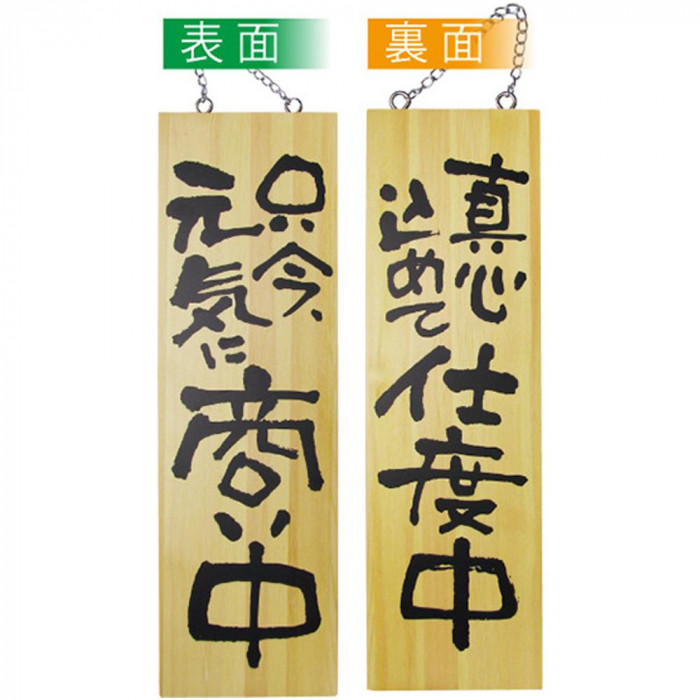 表面
只今、
元気に
商い中
裏面
真心
込めて
仕度中